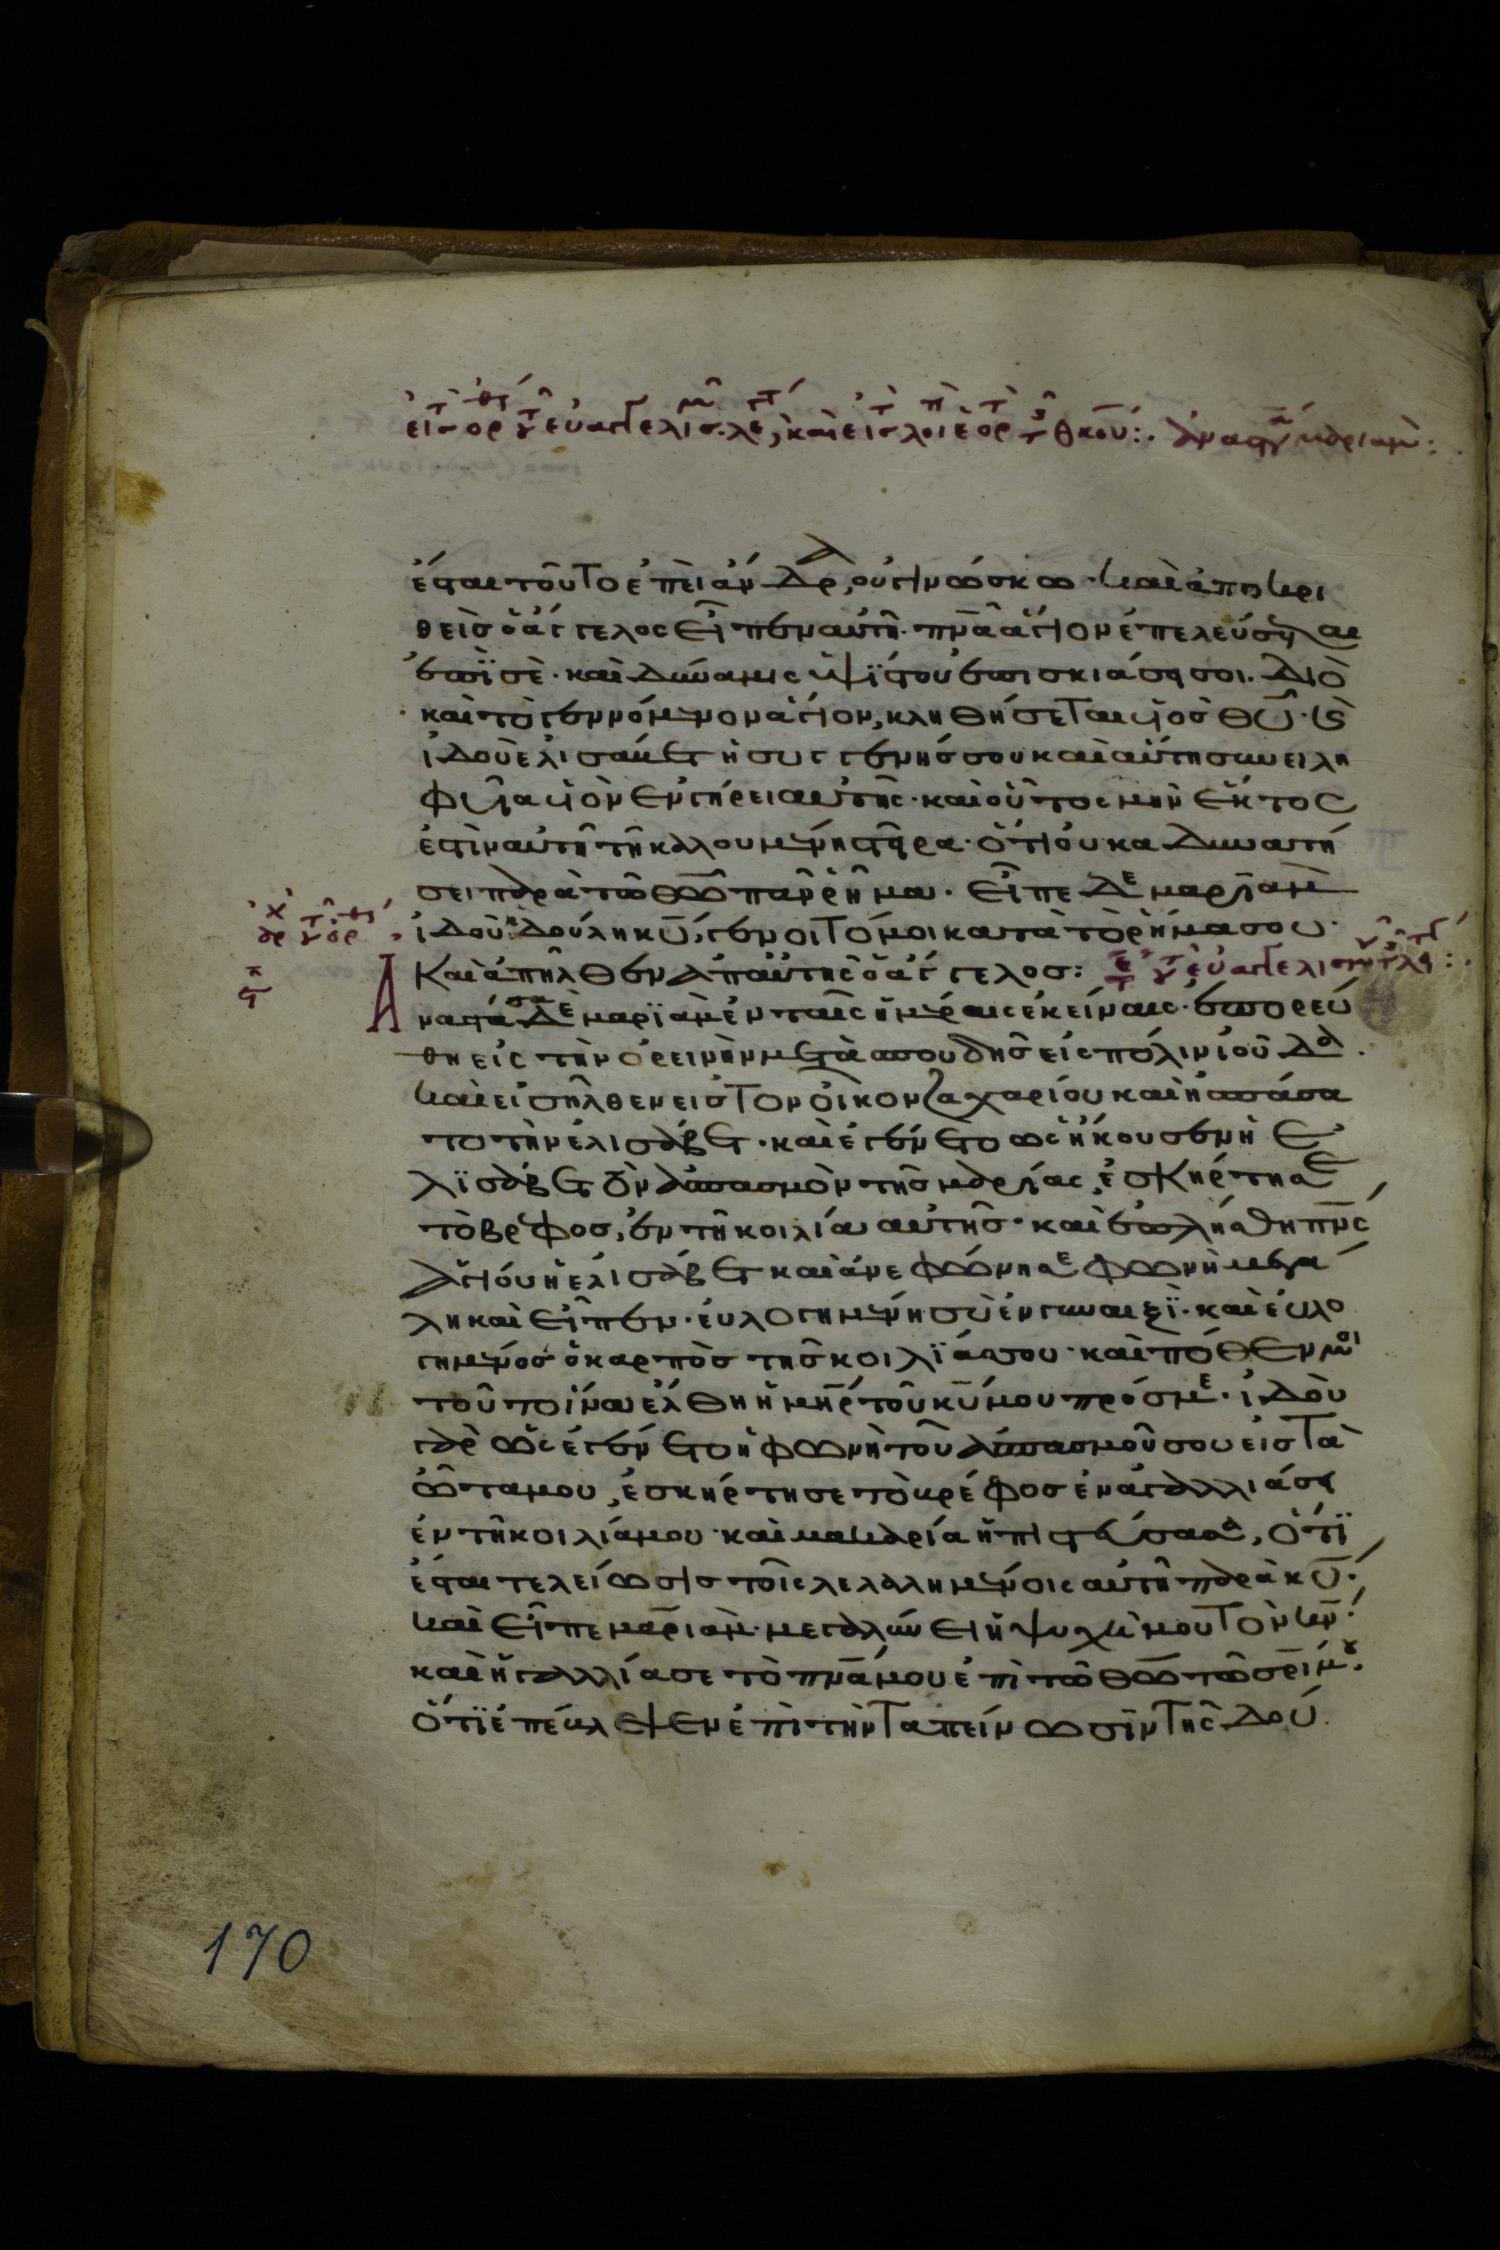 ἔσται τοῦτο ἐπεὶ ἄνδρα οὐ γινώσκω· καὶ ἀποκρι
θεὶς ὁ ἄγγελος εἶπεν αὐτῇ· πνα ἅγιον ἐπελεύσεται
ἐπὶ σὲ· καὶ δύναμις ὑψίστου ἐπισκιάσει σοι. διὸ
καὶ τὸ γεννόμενον ἅγιον, κληθήσεται υἱὸς θυ· καὶ
ἰδοὺ ἐλισάβετ ἡ συγγενής σου καὶ αὐτὴ συνειλη
φυῖα υἱὸν ἐν γήρει αὐτῆς· καὶ οὗτος μὴν ἕκτος
ἐστὶν αὐτῇ τῇ καλουμένῃ στείρα· ὅτι οὐκ ἀδυνατή
σει παρὰ τῶ θω πᾶν ῥῆμα. εἶπε δε μαριὰμ
ἰδοὺ ἡ δούλη κυ, γένοιτό μοι κατὰ τὸ ῥῆμα σου·
Καὶ ἀπῆλθεν ἀπ αὐτῆς ὁ ἄγγελος:
Ἀναστάσα δὲ μαριὰμ ἐν ταῖς ἡμέραις ἐκείναις· ἐπορεύ
θη εἰς τὴν ὀρεινὴν μετὰ σπουδῆς εἰς πόλιν ἰούδα.
καὶ εἰσῆλθεν εἰς τὸν οἶκον ζαχαρίου καὶ ἠσπάσα
το τὴν ἐλισάβετ· καὶ ἐγένετο ὡς ἤκουσεν ἡ ἐ
λισάβετ τὸν ἀσπασμὸν τῆς μαρίας, ἐσκήρτησε
τὸ βρέφος, ἐν τῇ κοιλία αὐτῆς· καὶ ἐπλήσθη πνς
ἁγίου ἡ ἐλισάβετ καὶ ἀνεφώνησε φωνῇ μεγά
λη καὶ εἶπεν· εὐλογημένη σὺ ἐν γυναιξὶ· καὶ εὐλο
γημένος ὁ καρπὸς τῆς κοιλίας σου· καὶ πόθεν μοι
τοῦτο ἵνα ἔλθη ἡ μηρ τοῦ κυ μου πρός με· ἰδοὺ
γὰρ ὡς ἐγένετο ἡ φωνὴ τοῦ ἀσπασμοῦ σου εἰς τὰ
ὦτα μου, ἐσκήρτησε τὸ βρέφος ἐν ἀγαλλιάσει
ἐν τῇ κοιλία μου· καὶ μακαρία ἡ πιστεύσασα, ὅτι
ἔσται τελείωσις τοῖς λελαλημένοις αὐτῇ παρὰ κυ·
καὶ εἶπε μαριὰμ· μεγαλύνει ἡ ψυχὴ μου τὸν κν·
καὶ ἠγαλλίασε τὸ πνα μου ἐπὶ τῶ θω τῶ σρι μου.
ὅτι ἐπέβλεψεν ἐπὶ τὴν ταπείνωσιν τῆς δού
170